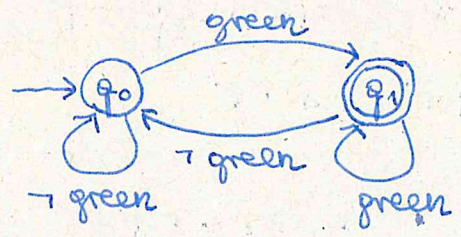 green
q0 q1
¬ green
¬ green green